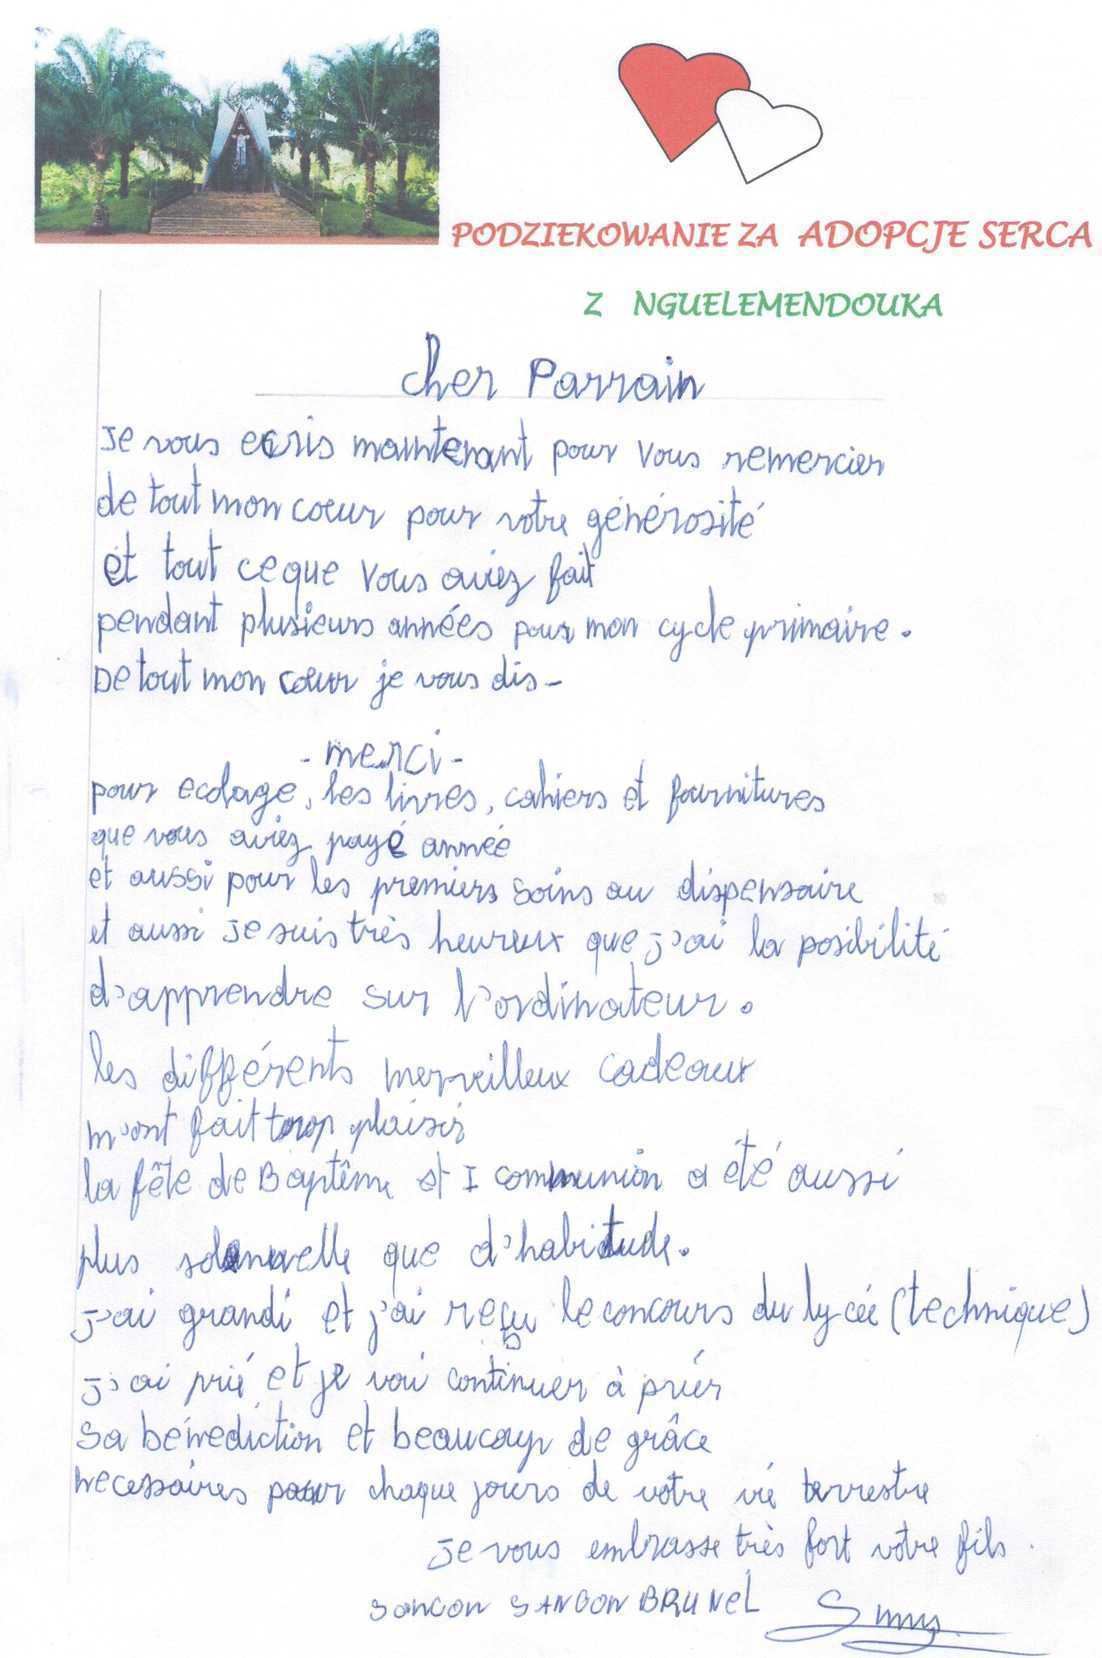 PODZIEKOWANIE ZA ADOPCJE SERCA
Z NGUELEMENDOUKA
cher Parrain
Je vous ecris maintenant pour vous remercier
de tout mon coeur pour votre générosité
et tout ce que vous aviez fait
pendant plusieurs années pour mon cycle primaire.
De tout mon coeur je vous dis -
- merci -
pour ecolage, les livres, cahiers et fournitures
que vous aviez payé année
et aussi pour les premiers soins au dispensaire
et aussi je suis très heureux que j'ai la posibilité
d'apprendre sur l'ordinateur.
les différents merveilleux cadeaux
m'ont fait trop plaisir
la fête de Baptême et I communion a été aussi
plus que d'habitude.
j'ai grandi et j'ai reçu le concours du lycée (technique)
j'ai prié et je vai continuer à priér
sa bénediction et beaucoup de grâce
necessaires pour chaque jours de votre vie terrestre
je vous embrasse très fort votre fils.
SANGON BRUNEL